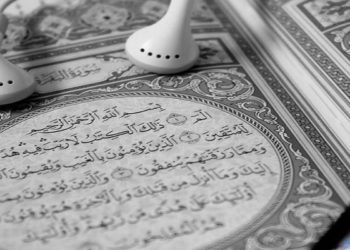 سورة البقرة
بسم الله الرحمن الرحيم
الم ذلك الكتب لا ريب فيه هدى
للمتقين الذين يؤمنون بالغيب ويقيمون
ومما رزقنهم ينفقون والذين يؤمنون
إليك وما أنزل من قبلك
أولئك على هدى من ربهم وأولئك
هم المفلحون